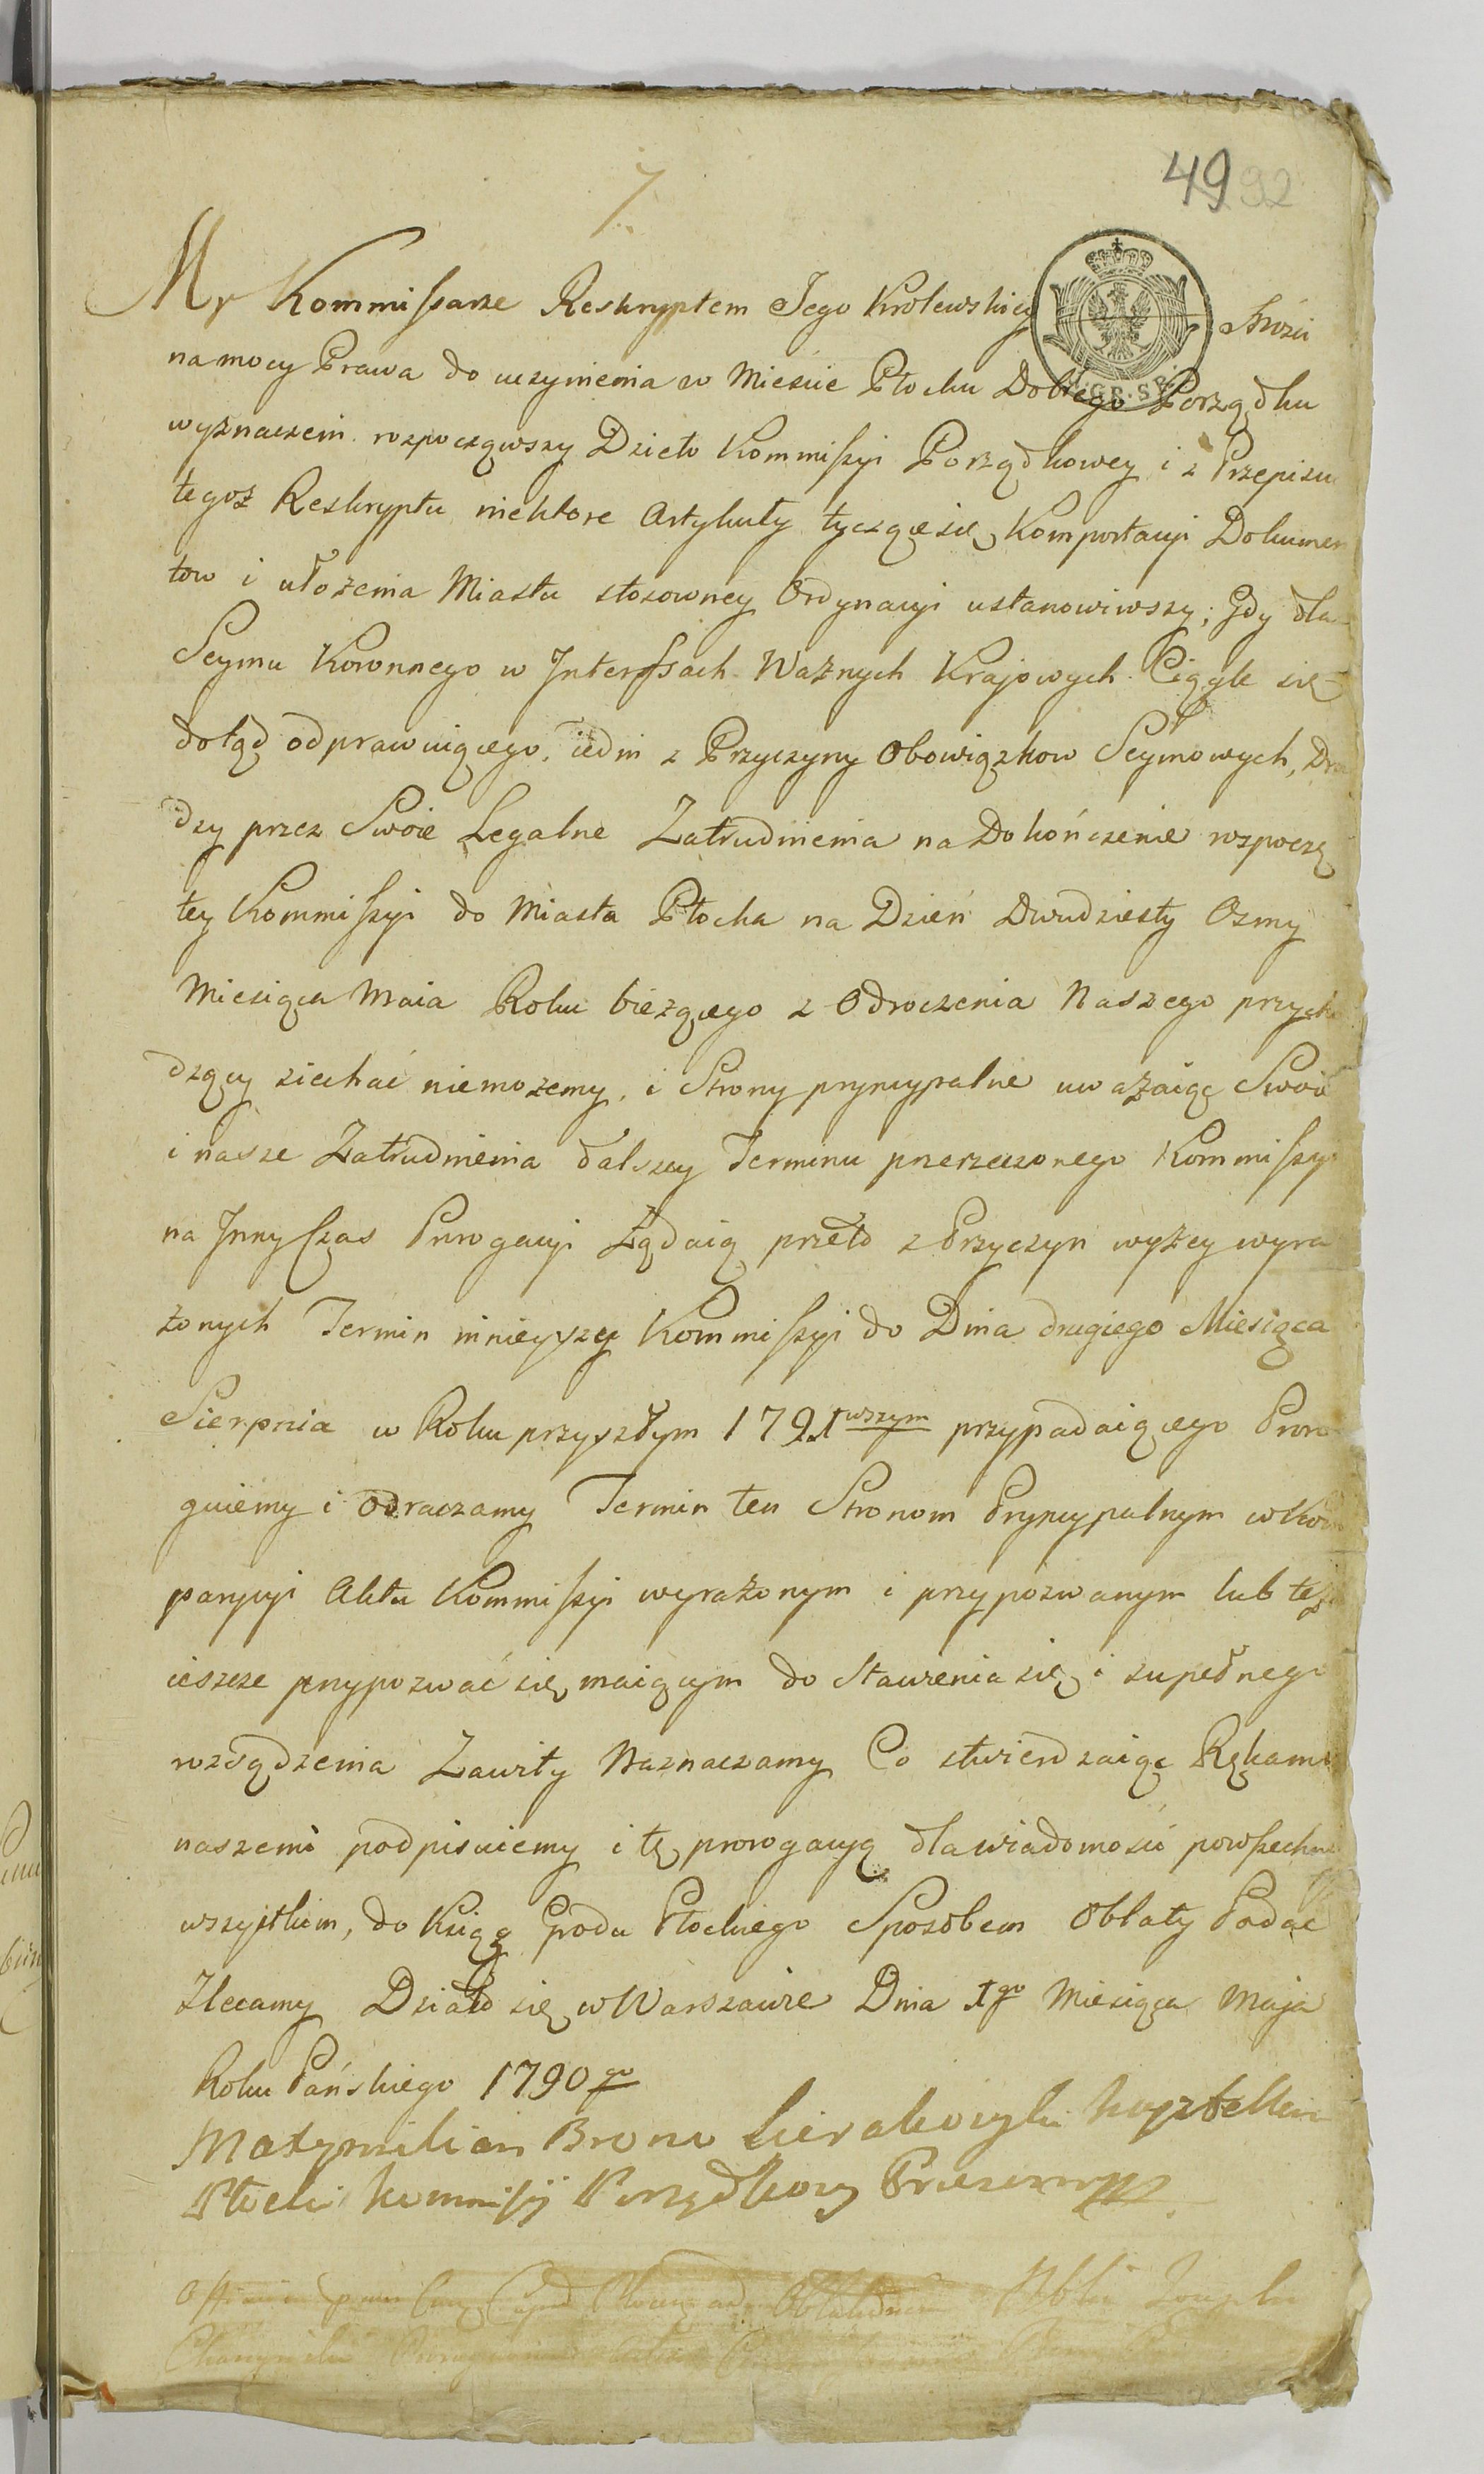 7.
49 92
My Kommissarze Reskryptem Jego Krolewskiey Mości
GR. SR.
na mocy Prawa do uczynienia w Mieście Płocku Dobrego Porządku
wyznaczeni rozpocząwszy Dzieło Kommissyi Porządkowey i z Przepisu
tegoż Reskryptu niektore Artykuły tyczące się Komportacyi Dokumen
tow i ułożenia Miastu stosowney Ordynacyi ustanowiwszy; Gdy dla
Seymu Koronnego w Interessach Ważnych Krajowych Ciągle się
dotąd odprawuiącego, iedni z Przyczyny Obowiązkow Seymowych, Dru
dzy przez Swoie Legalne Zatrudnienia na Dokończenie rozpoczę
tey Kommissyi do Miasta Płocka na Dzień Dwudziesty Osmy
Miesiąca Maia Roku bieżącego z Odroczenia Naszego przycho
dzący ziechać niemożemy, i Strony pryncypalne uważaiąc Swoie
i nasze Zatrudnienia dalszey Terminu przerzeczonego Kommissyi
na Inny Czas Prorogacyi Żądaią przeto z Przyczyn wyżey wyra
żonych Termin ninieyszey Kommissyi do Dnia drugiego Miesiąca
Sierpnia w Roku przyszłym 1791wszym przypadaiącego Proro
guiemy i odraczamy Termin ten Stronom Pryncypalnym w Kom
parycyi Aktu Kommissyi wyrażonym i przypozwanym lub też
ieszcze przypozwać się maiącym do Stawienia się i zupełnego
rozsądzenia Zawity Naznaczamy Co stwierdzaiąc Rękami
naszemi podpisuiemy i tę prorogacyą dla wiadomości powszechney
wszystkim, do Ksiąg Grodu Płockiego Sposobem Oblaty Podać
Zlecamy Działo się w Warszawie Dnia 1go Miesiąca Maja
Roku Pańskiego 1790go
Maxymilian Bruno Sierakowski Kasztellan
Płocki Kommissyi Porządkowy Prezes mpp